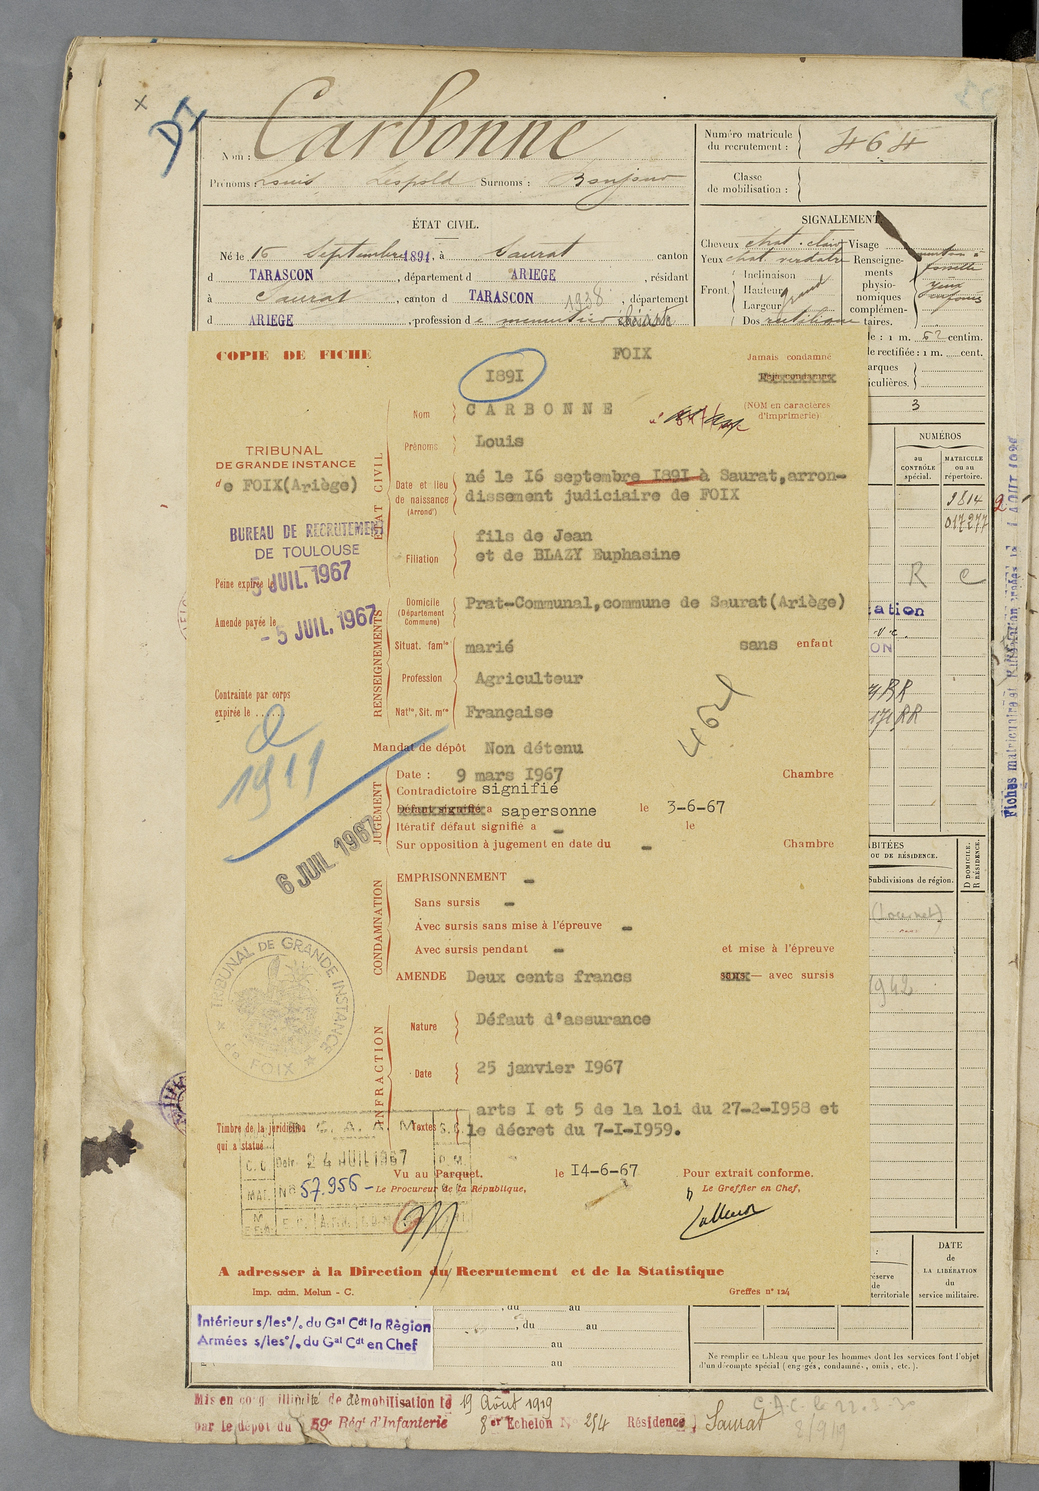 Carbonne
Nom :
Prénoms : Louis Léopold Surnoms : Bonjour
Numéro matricule
du recrutement :
464
Classe
de mobilisation :
ÉTAT CIVIL.
Né le 16 Septembre 1891, à Saurat canton
d TARASCON, département d ARIEGE, résidant
à Saurat, canton d TARASCON 1938, département
d ARIEGE, profession d e
SIGNALEMENT
Cheveux chat. clair Visage
Yeux chat verdâtre Renseigne-
ments
physio-
nomiques
complémen-
taires.
Front
Inclinaison
Hauteur grand
Largeur
Dos rectiligne
menton à
fossette
yeux
enfoncés
le : 1 m. 62 centim.
le rectifiée : 1 m. cent.
arques
iculières.
3
NUMÉROS
au
CONTRÔLE
spécial.
MATRICULE
ou au
répertoire.
9814
017277
R C
COPIE DE FICHE
FOIX
1891
Jamais condamné
(NOM en caractères
d'imprimerie)
TRIBUNAL
DE GRANDE INSTANCE
de FOIX(Ariège)
BUREAU DE RECRUTEMENT
DE TOULOUSE
Peine expirée le
5 JUIL. 1967
Amende payée le
- 5 JUIL. 1967
Contrainte par corps
expirée le
1911
6 JUIL. 1967
ÉTAT CIVIL
Nom CARBONNE
Prénoms Louis
Date et lieu
de naissance
(Arrondt)
né le I6 septembre I89I à Saurat,arron-
dissement judiciaire de FOIX
Filiation
fils de Jean
et de BLAZY Euphasine
RENSEIGNEMENTS
Domicile
(Département
Commune)
Prat-Communal,commune de Saurat(Ariège)
Situat. famle marié sans enfant
Profession Agriculteur
Natté, Sit. mre Française
464
Mandat de dépôt Non détenu
JUGEMENT
Date : 9 mars I967 Chambre
Contradictoire signifié
Défaut signifié a sapersonne le 3-6-67
Itératif défaut signifié a - le
Sur opposition à jugement en date du - Chambre
CONDAMNATION
EMPRISONNEMENT -
Sans sursis -
Avec sursis sans mise à l'épreuve -
Avec sursis pendant - et mise à l'épreuve
AMENDE Deux cents francs — avec sursis
INFRACTION
Nature Défaut d'assurance
Date 25 janvier I967
Textes
arts I et 5 de la loi du 27-2-I958 et
le décret du 7-I-I959.
TRIBUNAL DE GRANDE INSTANCE
de FOIX
Timbre de la juridiction
qui a statué
C. A. A. M.
24 JUIL 1967
N° 57.956
Vu au Parquet. le I4-6-67 Pour extrait conforme.
Le Procureur de la République, Le Greffier en Chef,
A adresser à la Direction du Recrutement et de la Statistique
Imp. adm. Melun - C. Greffes n° 124
BITÉES
OU DE RÉSIDENCE.
Subdivisions de région.
D DOMICILE.
R RÉSIDENCE.
1942
réserve
de
territoriale
DATE
de
LA LIBÉRATION
du
service militaire.
Intérieur s/les °/. du Gal Cdt la Règion
Armées s/les °/. du Gal Cdt en Chef
, du au
, du au
au
au
Ne remplir ce tableau que pour les hommes dont les services font l'objet
d'un décompte spécial (engagés, condamnés, omis, etc.).
Mis en congé illimité de démobilisation le 19 Août 1919
par le dépôt du 59e Régt d'Infanterie 8er Echelon N° 254 Résidence, Saurat
C.A.C. le 22.3.30
8/9/19